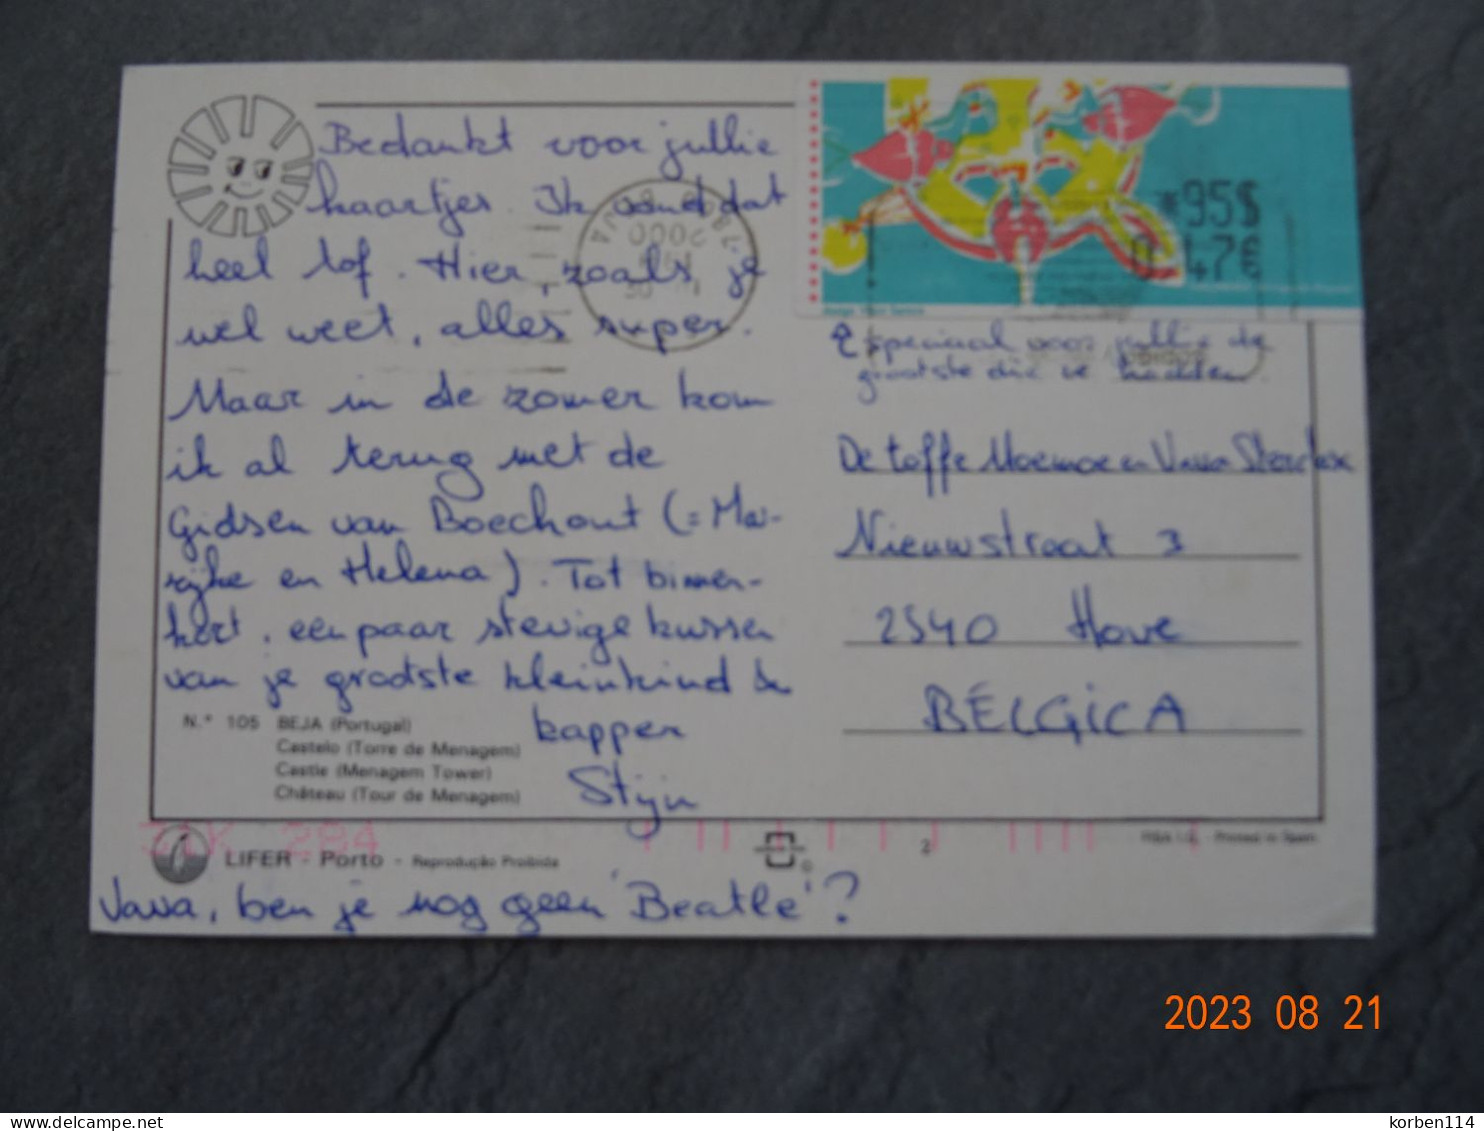 Bedankt voor jullie
kaartjes. Ik vond dat
heel tof. Hier, zoals je
wel weet, alles super.
Maar in de zomer kom
ik al terug met de
Gidsen van Boechout (= Ma-
rijke en Helena). Tot binnen-
kort, een paar stevige kussen
van je grootste kleinkind &
kapper
Stijn
N.º 105 BEJA (Portugal)
Castelo (Torre de Menagem)
Castle (Menagem Tower)
Château (Tour de Menagem)
284
LIFER - Porto - Reprodução Proibida
Vava, ben je nog geen 'Beatle'?
2000
*95$
0,47€
speciaal voor jullie de
grootste die ze hadden.
De toffe Moemoe en Vava
Nieuwstraat 3
2540 Hove
BÉLGICA
2
Printed in Spain
2023 08 21
korben114